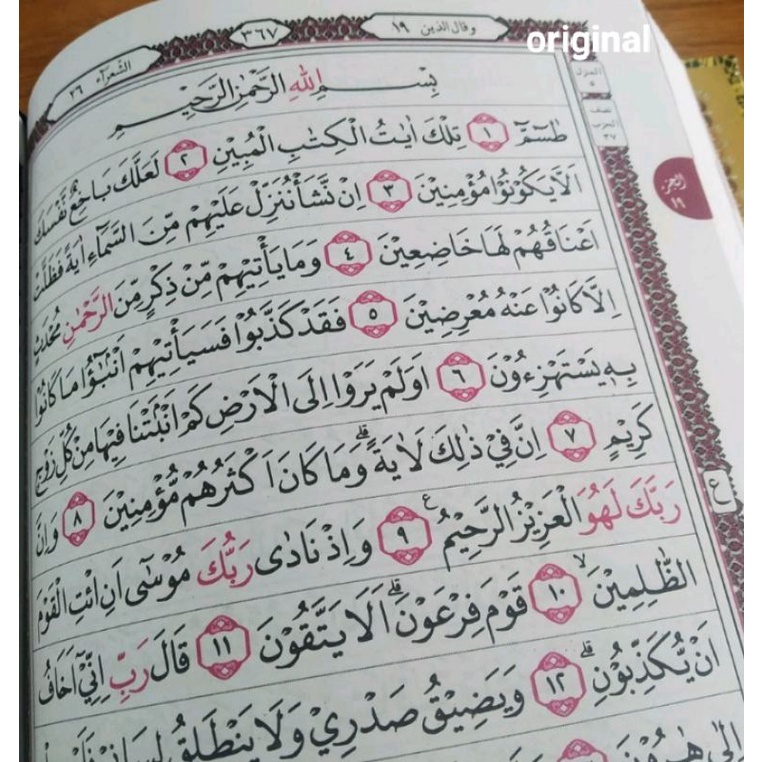 original
وقال الذين ١٩
٣٦٧
الشعرآء ٢٦
بِسْمِ اللهِ الرَّحْمٰنِ الرَّحِيْمِ
طٰسۤمّۤ ١ تِلْكَ اٰيٰتُ الْكِتٰبِ الْمُبِيْنِ ٢ لَعَلَّكَ بَاخِعٌ نَّفْسَكَ
اَلَّا يَكُوْنُوْا مُؤْمِنِيْنَ ٣ اِنْ نَّشَأْ نُنَزِّلْ عَلَيْهِمْ مِّنَ السَّمَاۤءِ اٰيَةً فَظَلَّتْ
اَعْنَاقُهُمْ لَهَا خَاضِعِيْنَ ٤ وَمَا يَأْتِيْهِمْ مِّنْ ذِكْرٍ مِّنَ الرَّحْمٰنِ مُحْدَثٍ
اِلَّا كَانُوْا عَنْهُ مُعْرِضِيْنَ ٥ فَقَدْ كَذَّبُوْا فَسَيَأْتِيْهِمْ اَنْۢبٰۤؤُا مَا كَانُوْا
بِهٖ يَسْتَهْزِءُوْنَ ٦ اَوَلَمْ يَرَوْا اِلَى الْاَرْضِ كَمْ اَنْۢبَتْنَا فِيْهَا مِنْ كُلِّ زَوْجٍ
كَرِيْمٍ ٧ اِنَّ فِيْ ذٰلِكَ لَاٰيَةًۗ وَمَا كَانَ اَكْثَرُهُمْ مُّؤْمِنِيْنَ ٨ وَاِنَّ
رَبَّكَ لَهُوَ الْعَزِيْزُ الرَّحِيْمُ ࣖ ٩ وَاِذْ نَادٰى رَبُّكَ مُوْسٰٓى اَنِ ائْتِ الْقَوْمَ
الظّٰلِمِيْنَۙ ١٠ قَوْمَ فِرْعَوْنَۗ اَلَا يَتَّقُوْنَ ١١ قَالَ رَبِّ اِنِّيْٓ اَخَافُ
اَنْ يُّكَذِّبُوْنِۗ ١٢ وَيَضِيْقُ صَدْرِيْ وَلَا يَنْطَلِقُ لِسَانِيْ
اِلٰى هٰرُوْنَ
الجزء
١٩
ع